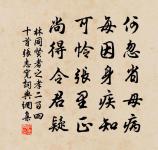 何忽省母病
每因身疾知
可怜張里正
尚得令君疑
林同賢者之孝二百四
十首張志寬詞典調集